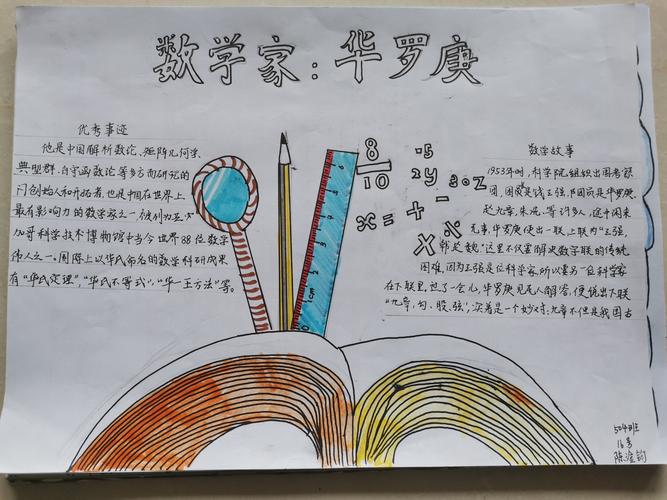 数学家:华罗庚
优秀事迹
他是中国解析数论、矩阵几何学、
典型群、自守函数论等多方面研究的
创始人和开拓者,也是中国在世界上
最有影响力的数学家之一,被列为芝
加哥科学技术博物馆中当今世界88位数学
伟人之一。国际上以华氏命名的数学科研成果
有“华氏定理”、“华氏不等式”、“华—王方法”等。
8
10
-5
2y
302
x = + -
X %
数学故事
1953年,科学院组织出国考察
团,团员是华罗庚、
赵九章、朱洗等许多人,途中闲来
无事,华罗庚便出一联,上联为“三强,
韩赵魏”这里不仅要解决数字联的传统
困难,因为三强是位科学家,所以要另一位科学家
在下联里,过了一会儿,华罗庚见无人解答,便说出下联
“九章,勾、股、弦”,是一个妙对:九章不但是我国古
504班
16号